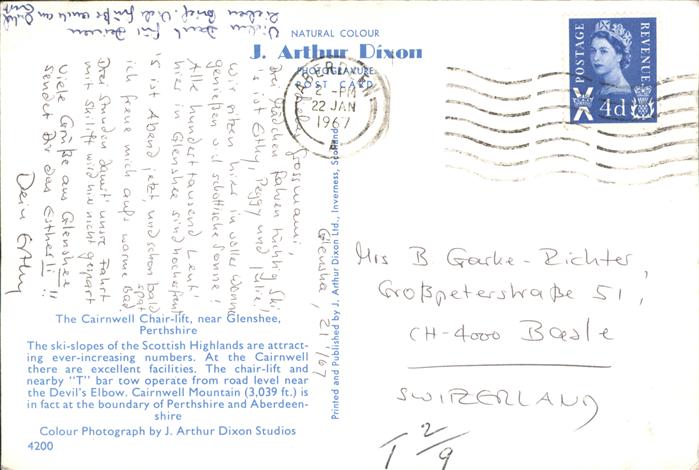 NATURAL COLOUR
J. Arthur Dixon
PHOTOGRAVURE
POST CARD
ABERDEEN
2 - PM
22 JAN
1967
POSTAGE
REVENUE
4d
Vielen Dank für Deinen
lieben Brief. Viele Grüße auch an
Glenshee, 21/1/67
Liebe Grossmami,
Drei Mädchen fahren tüchtig Ski
's ist Esthy, Peggy und Julie!
Wir sitzen hier in voller Wonne
geniessen viel schottische Sonne!
Alle hundert tausend Leut'
hier in Glenshee sind hocherfreut
's ist Abend jetzt, und schon bald spät
ich freue mich aufs warme Bad.
Drei Stunden dauert unsre Fahrt
mit Skilift wird hier nicht gespart
Viele Grüße aus Glenshee
sendet Dir das Estherli!!
Dein Esthy
Mrs B Garke-Richter,
Großpeterstraße 51,
CH-4000 Basle
SWITZERLAND
T 2/9
The Cairnwell Chair-lift, near Glenshee,
Perthshire
The ski-slopes of the Scottish Highlands are attract-
ing ever-increasing numbers. At the Cairnwell
there are excellent facilities. The chair-lift and
nearby "T" bar tow operate from road level near
the Devil's Elbow. Cairnwell Mountain (3,039 ft.) is
in fact at the boundary of Perthshire and Aberdeen-
shire
Colour Photograph by J. Arthur Dixon Studios
4200
Printed and Published by J. Arthur Dixon Ltd., Inverness, Scotland